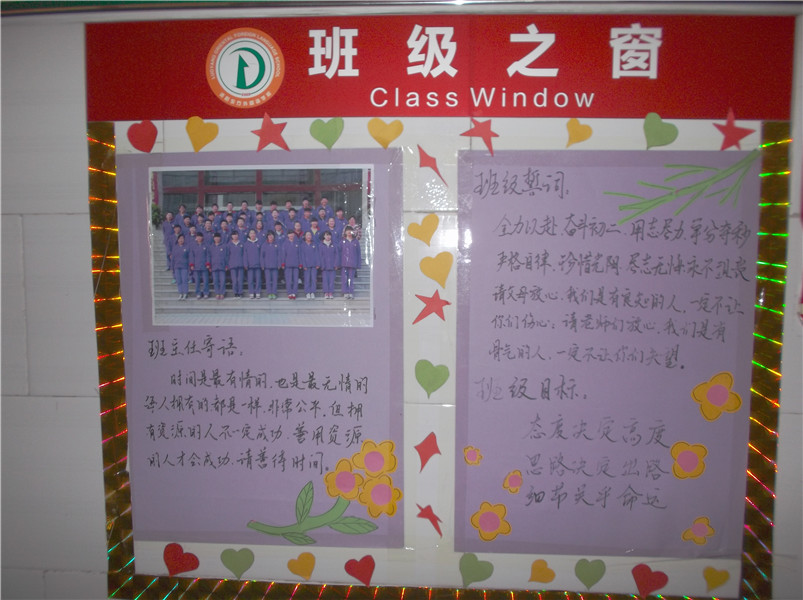 班级之窗
Class Window
班主任寄语:
时间是最有情的,也是最无情的
每人拥有的都是一样,非常公平。但拥
有资源的人不一定成功、善用资源
的人才会成功、请善待时间。
班级誓词:
全力以赴、奋斗初二、用志尽力、争分夺秒
严格自律、珍惜光阴、尽志无悔、永不沮丧
请父母放心,我们是有良知的人,一定不让
你们伤心;请老师们放心,我们是有
骨气的人,一定不让你们失望。
班级目标:
态度决定高度
思路决定出路
细节关乎命运